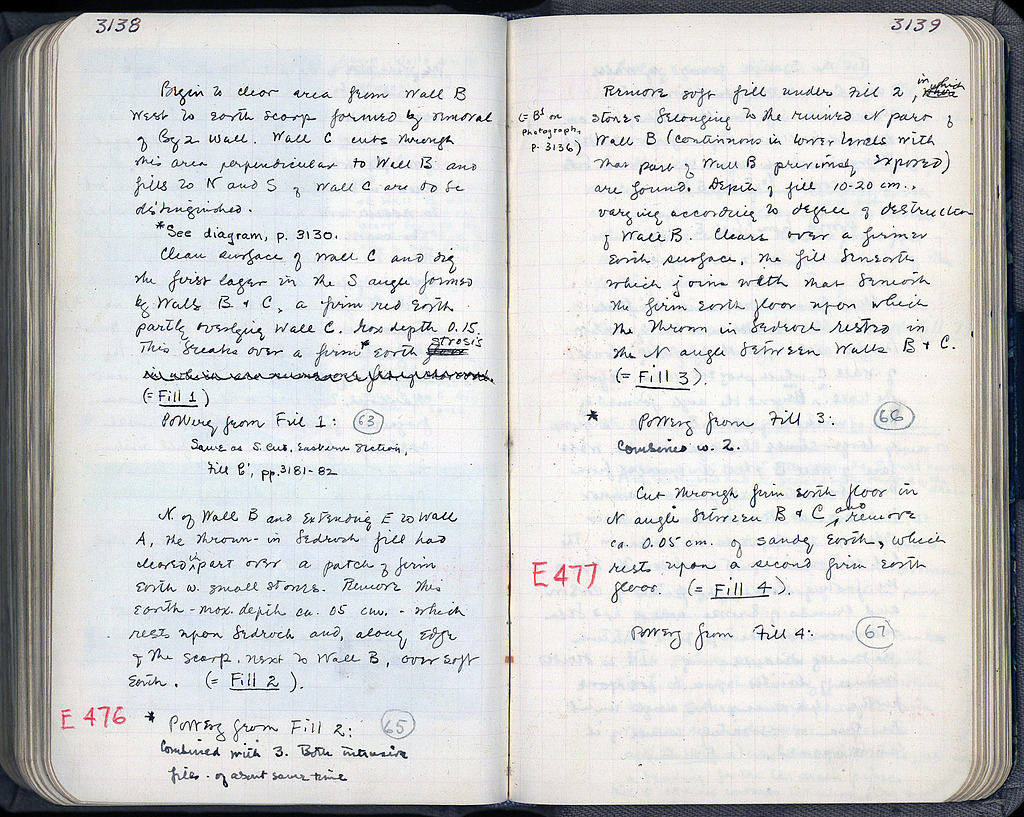 3138
Begin to clear area from Wall B
West to earth scarp formed by removal
of By2 wall. Wall C cuts through
this area perpendicular to Wall B and
fills to N and S of Wall C are to be
distinguished.
*See diagram, p. 3130.
Clean surface of Wall C and dig
the first layer in the S angle formed
by Walls B & C, a firm red earth
partly overlying Wall C. Max depth 0.15.
This breaks over a firm* earth strosis
(= Fill 1)
Pottery from Fill 1: 63
Same as S. Cut, Eastern Section,
Fill B', pp. 3181-82
N. of Wall B and extending E to Wall
A, the thrown-in bedrock fill had
cleared in part over a patch of firm
earth w. small stones. Remove this
earth - max. depth ca. 05 cm. - which
rests upon bedrock and, along edge
of the scarp, next to Wall B, over soft
earth. (= Fill 2).
E 476
* Pottery from Fill 2: 65
Combined with 3. Both intrusive
files - of about same time
3139
Remove soft fill under Fill 2, in which
(= B¹ on
Photograph,
p. 3136)
stones belonging to the ruined N part of
Wall B (continuous in lower levels with
that part of Wall B previously exposed)
are found. Depth of fill 10-20 cm.,
varying according to degree of destruction
of Wall B. Clears over a firmer
earth surface, the fill beneath
which joins with that beneath
the firm earth floor upon which
the thrown in bedrock rested in
the N angle between Walls B & C.
(= Fill 3).
* Pottery from Fill 3: 66
Combined w. 2.
Cut through firm earth floor in
N angle between B & C and remove
ca. 0.05 cm. of sandy earth, which
rests upon a second firm earth
floor. (= Fill 4).
E 477
Pottery from Fill 4: 67